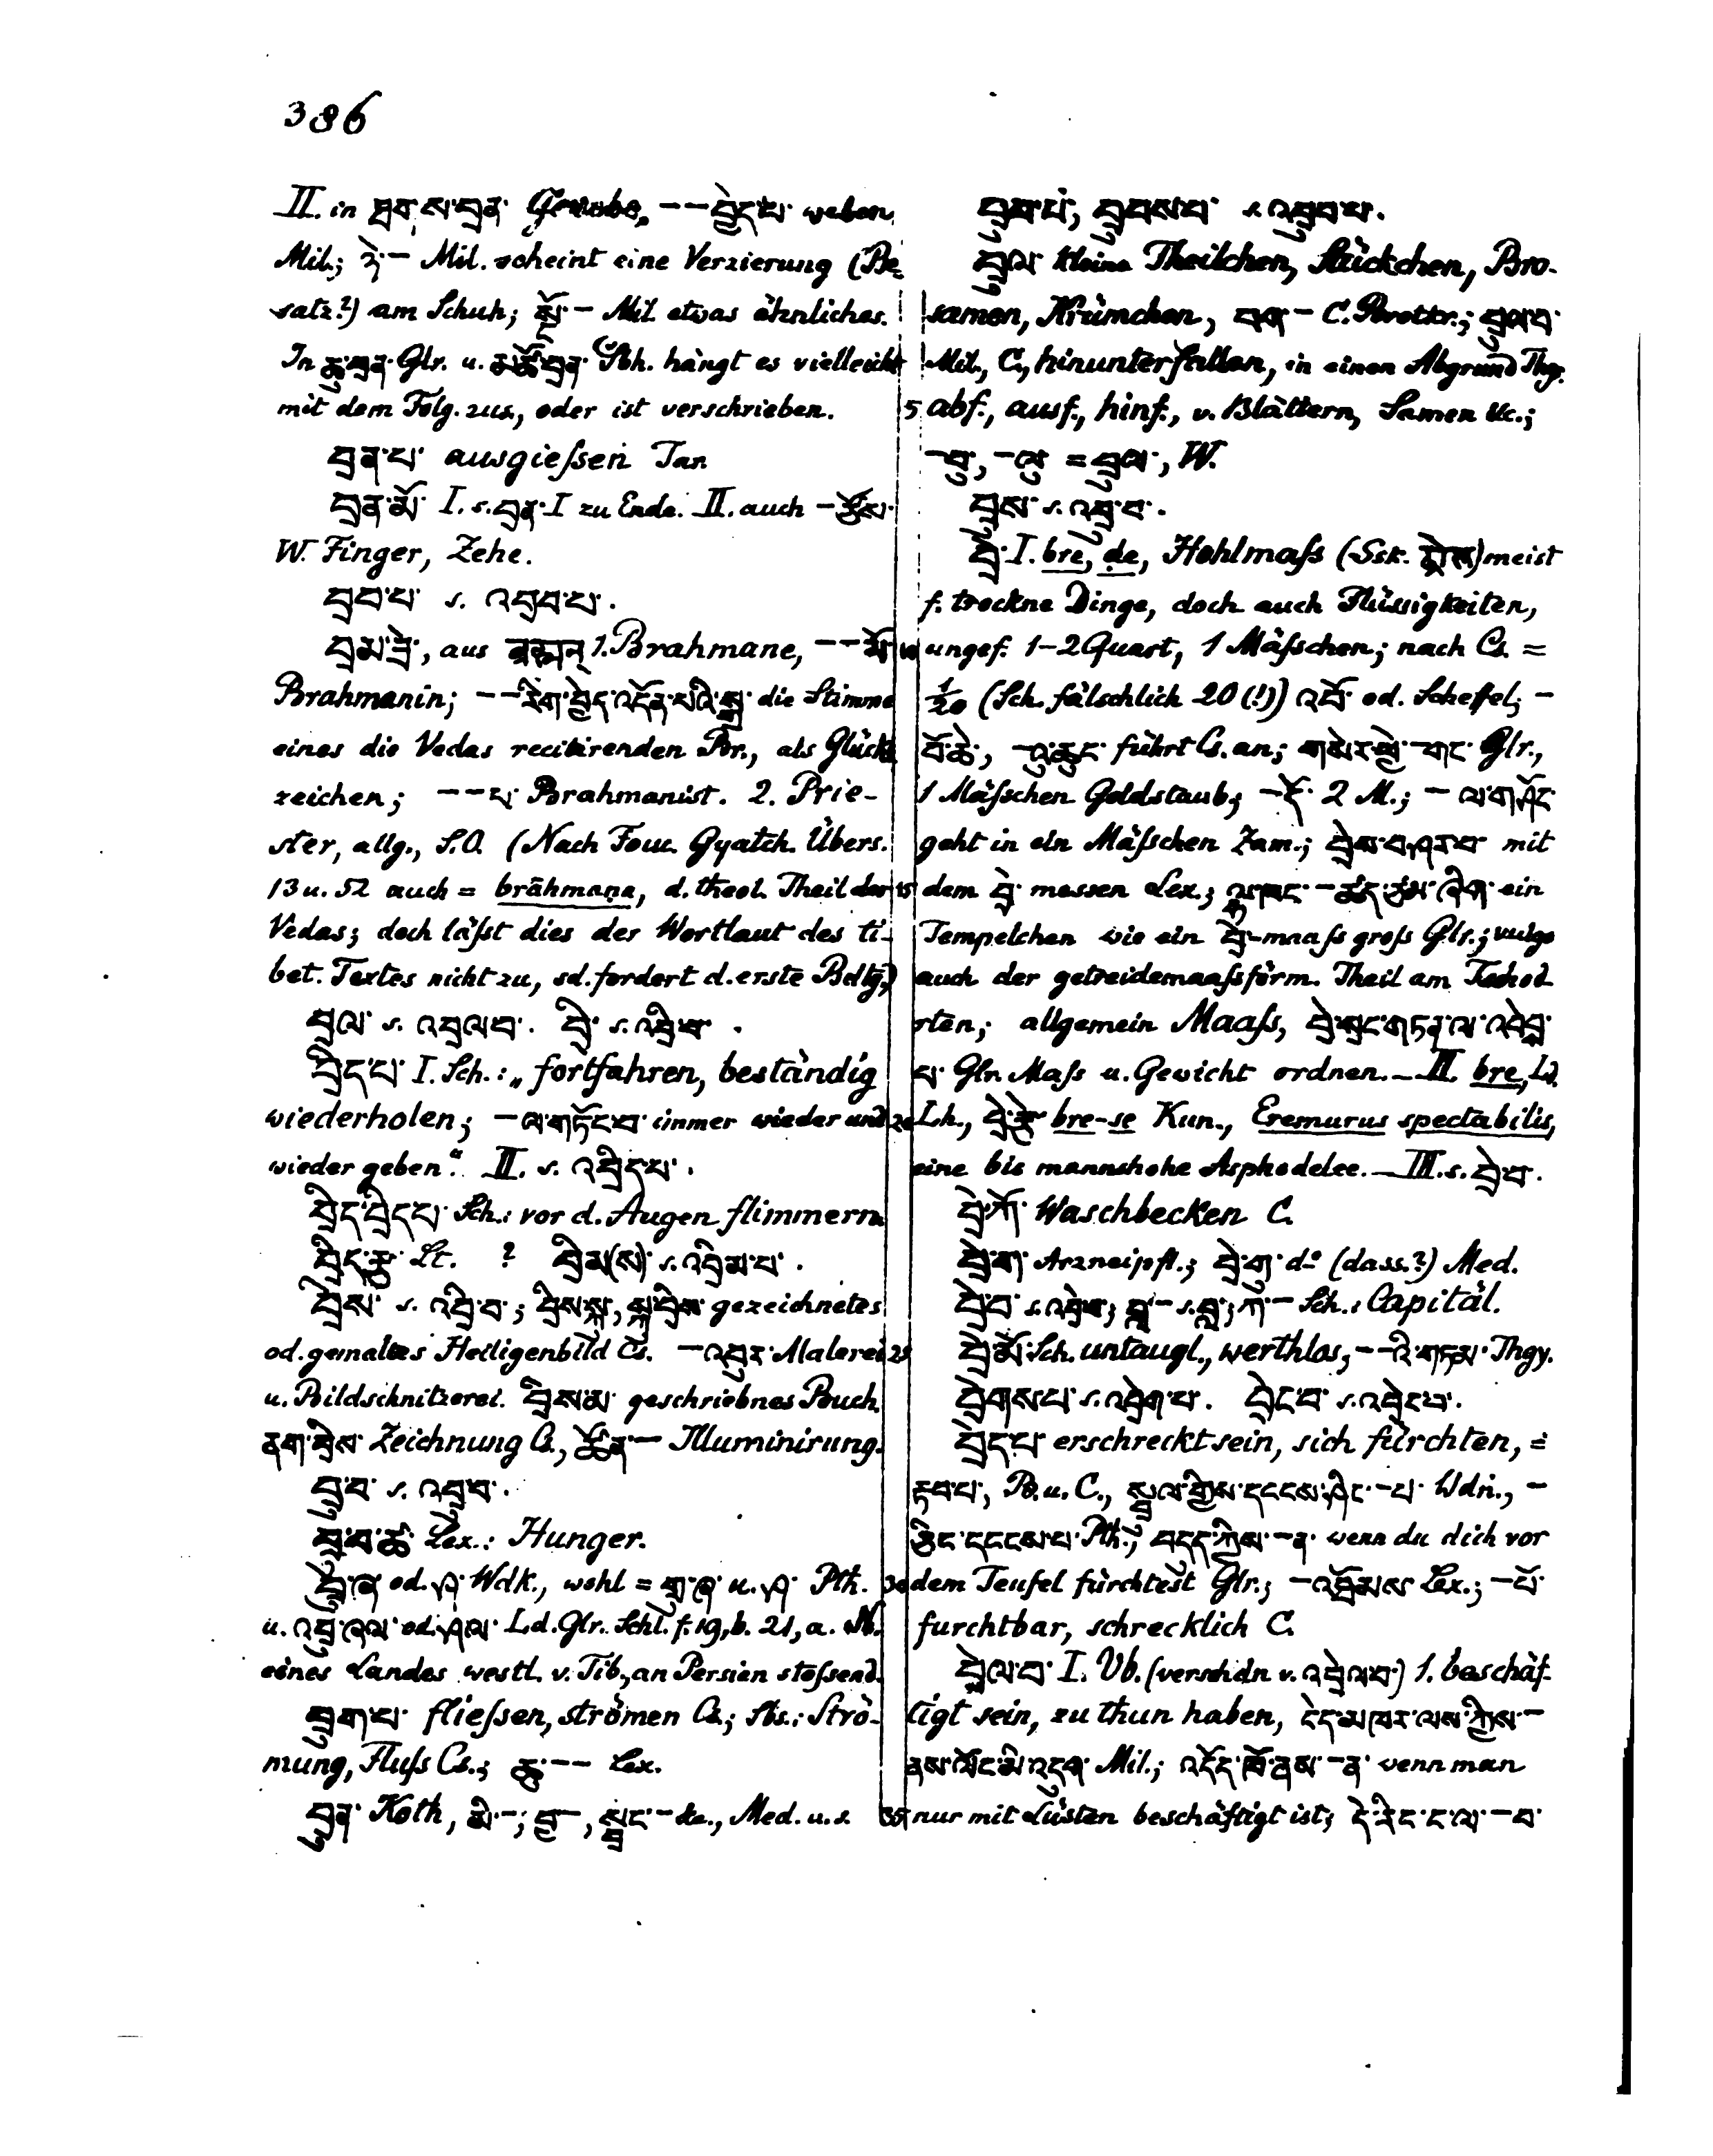 386
II. in ཐག་ས་བྲན་ Gewebe, -- བྱེད་པ་ weben
Mil.; དེ་ – Mil. scheint eine Verzierung (Be-
satz?) am Schuh; – Mil. etwas ähnliches.
In ཆུ་བྲན་ Glr. u. མཚོ་བྲན་ Sbh. hängt es vielleicht
mit dem Folg. zus., oder ist verschrieben.
བྲན་པ་ ausgießen Tar.
བྲན་མོ་ I. s. བྲན་ I zu Ende. II. auch –
W. Finger, Zehe.
བྲབ་པ་ s. འབྲབ་པ་.
བྲམ་ཟེ་, aus 1. Brahmane, -- མོ་
Brahmanin; -- རིག་བྱེད་འདོན་པའི་སྒྲ་ die Stimme
eines die Vedas recitirenden Br., als Glücks
zeichen; -- པ་ Brahmanist. 2. Prie-
ster, allg., S.O. (Nach Fouc. Gyatch. Übers.
13 u. 52 auch = brāhmaṇa, d. theol. Theil der
Vedas; doch läßt dies der Wortlaut des ti-
bet. Textes nicht zu, sd. fordert d. erste Bdtg.)
བྲལ་ s. འབྲལ་བ་. བྲི་ s. འབྲི་བ་.
བྲིད་པ་ I. Sch.: „fortfahren, beständig
wiederholen; – ལ་གཏོང་བ་ immer wieder und
wieder geben“. II. s. འབྲིད་པ་.
བྲིད་བྲིད་པ་ Sch.: vor d. Augen flimmern
Lt. ? བྲིམ(ས)་ s. འབྲིམ་པ་.
བྲིས་ s. འབྲི་བ་; བྲིས་སྐུ་, སྐུ་བྲིས་ gezeichnetes
od. gemaltes Heiligenbild Cs. – འབུར་ Malerei
u. Bildschnitzerei. བྲིས་མ་ geschriebnes Buch.
ནག་བྲིས་ Zeichnung Cs., ཚོན་ – Illuminirung.
བྲུ་བ་ s. འབྲུ་བ་.
བྲུ་བ་ཚ་ Lex.: Hunger.
བྲུ་ཞ་ od. ཤ་ Wdk., wohl = གྲུ་ཞ་ u. ཤ་ Pth.
u. འབྲུ་ཞལ་ od. ཤལ་ Ld. Glr. Schl. f. 19, b. 21, a. N.
eines Landes westl. v. Tib., an Persien stoßend.
བྲུག་པ་ fließen, strömen Cs.; Sbs.: Strö-
mung, Fluß Cs.; ཆུ་ -- Lex.
བྲུན་ Koth, མི་ –; བྱ་ –, སྦྲང་ – &c., Med. u. s.
བྲུབ་པ་, བྲུབས་པ་ s. འབྲུབ་པ་.
བྲུལ་ kleine Theilchen, Stückchen, Bro-
samen, Krümchen, བག་ – C. Brotkr.; བྲུལ་བ་
Mil., C., hinunterfallen, in einen Abgrund Thgr.
5 abf., ausf., hinf., v. Blättern, Samen &c.;
–བུ་, –ལུ་ = བྲུལ་, W.
བྲུས་ s. འབྲུ་བ་.
བྲེ་ I. bre, ḍe, Hohlmaß (Ssk. द्रोण) meist
f. trockne Dinge, doch auch Flüssigkeiten,
10 ungef. 1–2 Quart, 1 Mäßchen; nach Cs. =
1/20 (Sch. fälschlich 20 (!)) འབོ་ od. Scheffel; –
བོ་ཆེ་, – འུ་ཆུང་ führt Cs. an; གསེར་ཕྱེ་ – གང་ Glr.,
1 Mäßchen Goldstaub; – དོ་ 2 M.; – ལ་གཤོང་
geht in ein Mäßchen Zam.; བྲེས་བཤར་བ་ mit
15 dem བྲེ་ messen Lex.; ལྷ་ཁང་ – ཚད་ཙམ་ཞིག་ ein
Tempelchen wie ein བྲེ་-maaß groß Glr.; vulgo
auch der getreidemaaßförm. Theil am Tschod
rten; allgemein Maaß, བྲེ་སྲང་གཏན་ལ་འབེབ་
པ་ Glr. Maß u. Gewicht ordnen. – II. bre, Ld.
20 Lh., བྲེ་ཟེ་ bre-se Kun., Eremurus spectabilis,
eine bis mannshohe Asphodelee. – III. s. བྲེ་བ་.
བྲེ་ཀོ་ Waschbecken C.
བྲེ་ག་ Arzneipfl.; བྲེ་གུ་ do (dass.?) Med.
བྲེ་བ་ s. འབྲེ་བ་; བླ་ – s. བླ་; ཀ་ – Sch.: Capitäl.
25 བྲེ་མོ་ Sch. untaugl., werthlos, -- འི་གཏམ་ Thgy.
བྲེགས་པ་ s. འབྲེག་པ་. བྲེང་བ་ s. འབྲེང་བ་.
བྲེད་པ་ erschreckt sein, sich fürchten, =
དང་བ་, B. u. C., སྦྲུལ་གྱིས་དངངས་ཤིང་ – པ་ Wdn., –
ཅིང་དངངས་པ་ Pth., བདུད་ཀྱིས་ – ན་ wenn du dich vor
30 dem Teufel fürchtest Glr.; – འབྲོམས་ Lex.; – པོ་
furchtbar, schrecklich C.
བྲེལ་བ་ I. Vb. (verschdn v. འབྲེལ་བ་) 1. beschäf-
tigt sein, zu thun haben, ངེད་མཁར་ལས་ཀྱིས་ –
ནས་ལོང་མི་འདུག་ Mil.; འདོད་ཁོ་ནས་ – ན་ wenn man
35 nur mit Lüsten beschäftigt ist; དེ་རིང་ང་ལ་ – བ་